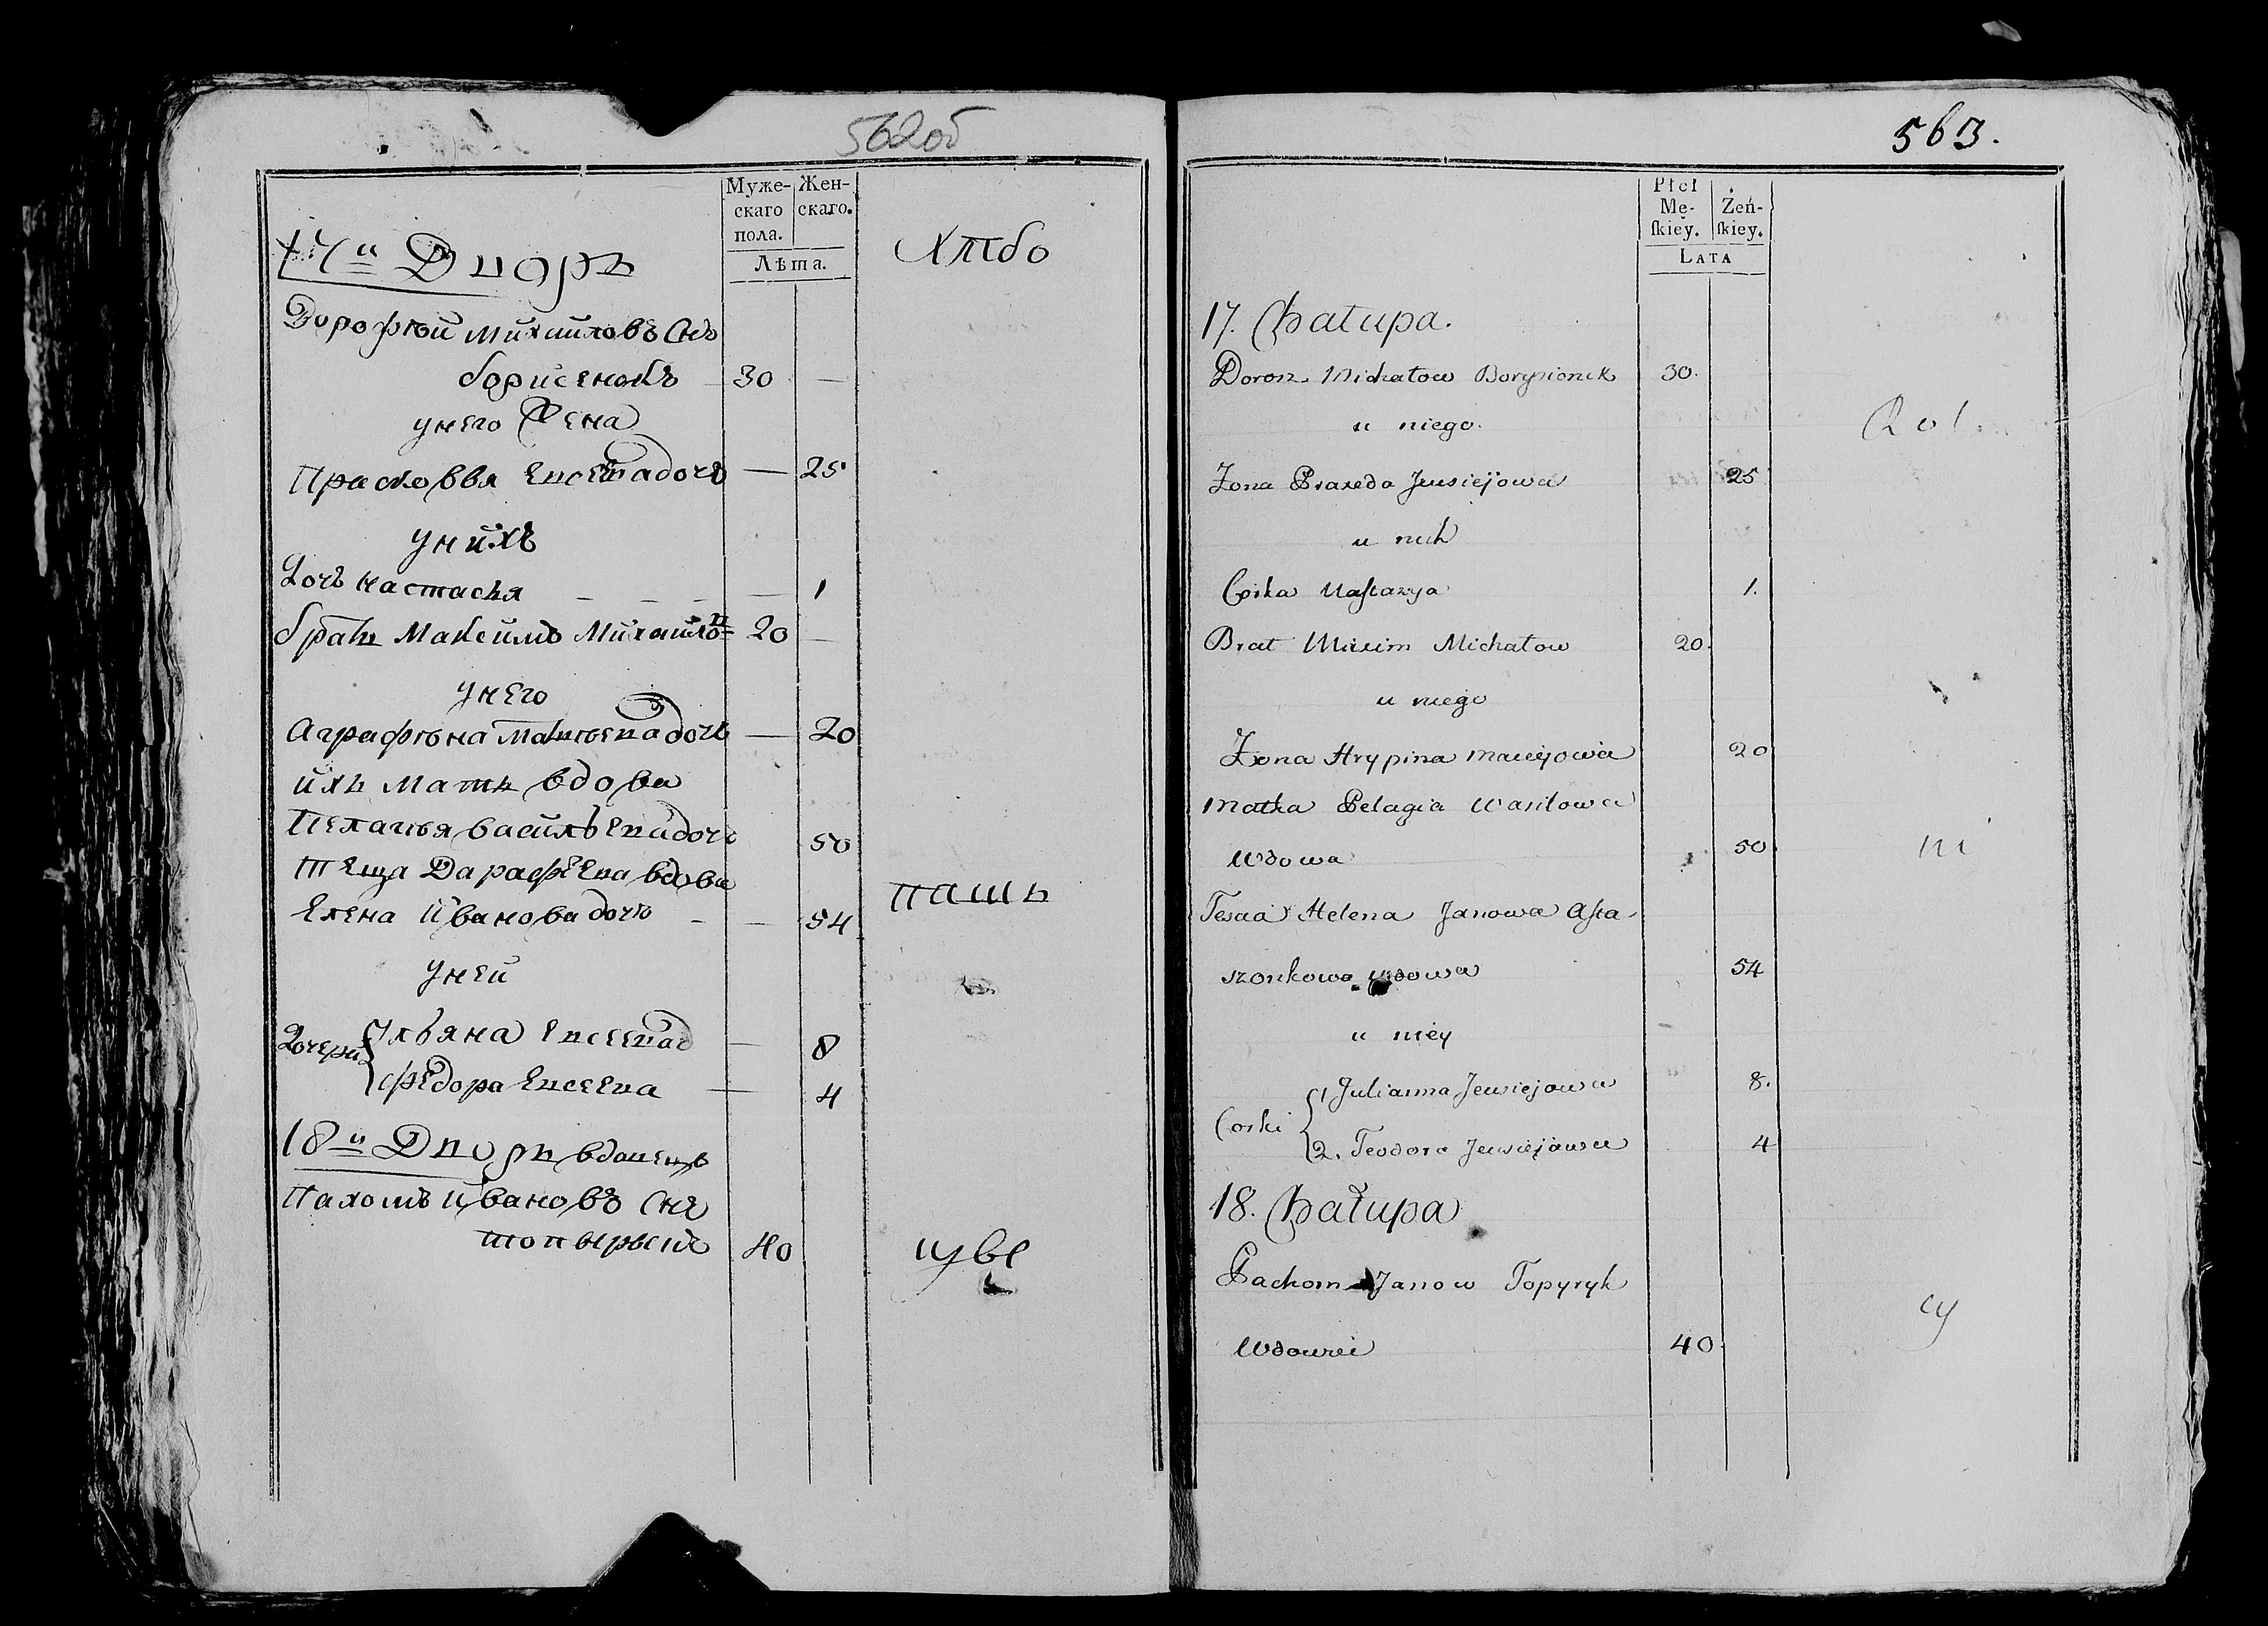 562об
Муже-
скаго
пола.
Жен-
скаго.
Лѣта.
17й Дворъ
Дорофѣй Михайловъ Снъ
борисенокъ 30 —
унего Жена
Прасковья Евсеева дочь — 25
унйхъ
Дочь настасья — 1
братъ Максимъ Михайло 20 —
унего
Аграфѣна Матвѣева дочь — 20
йхъ мать вдова
Пелагья васильева дочь 50
теща Дарафеева вдова
Елена Иванова дочь — 54
уней
Дочери Ульяна Евсеева д — 8
федора Евсеева — 4
18й Дворъ вдовецъ
Пахомъ Ивановъ Снъ
40
Хлѣбо
паш
це
563.
Płci
Mę-
ſkiey.
Żeń-
ſkiey.
LATA
17. Chałupa.
Michałow Borysionek 30.
u niego.
Żona Praxeda Jewsiejowa 25
u nich
Corka Naſtazya 1.
Brat Maxim Michałow 20.
u niego
Żona Hrypina Maciejowa 20
Matka Pelagia Wasilowa
Wdowa 50
Tescia Helena Janowa Aſta-
szonkowa wdowa 54
u niey
Corki 1 Julianna Jewsiejowa 8.
2. Teodora Jewsiejowa 4
18. Chałupa
Pachom Janow Topyryk
Wdowiei 40.
Rol
ni
cy